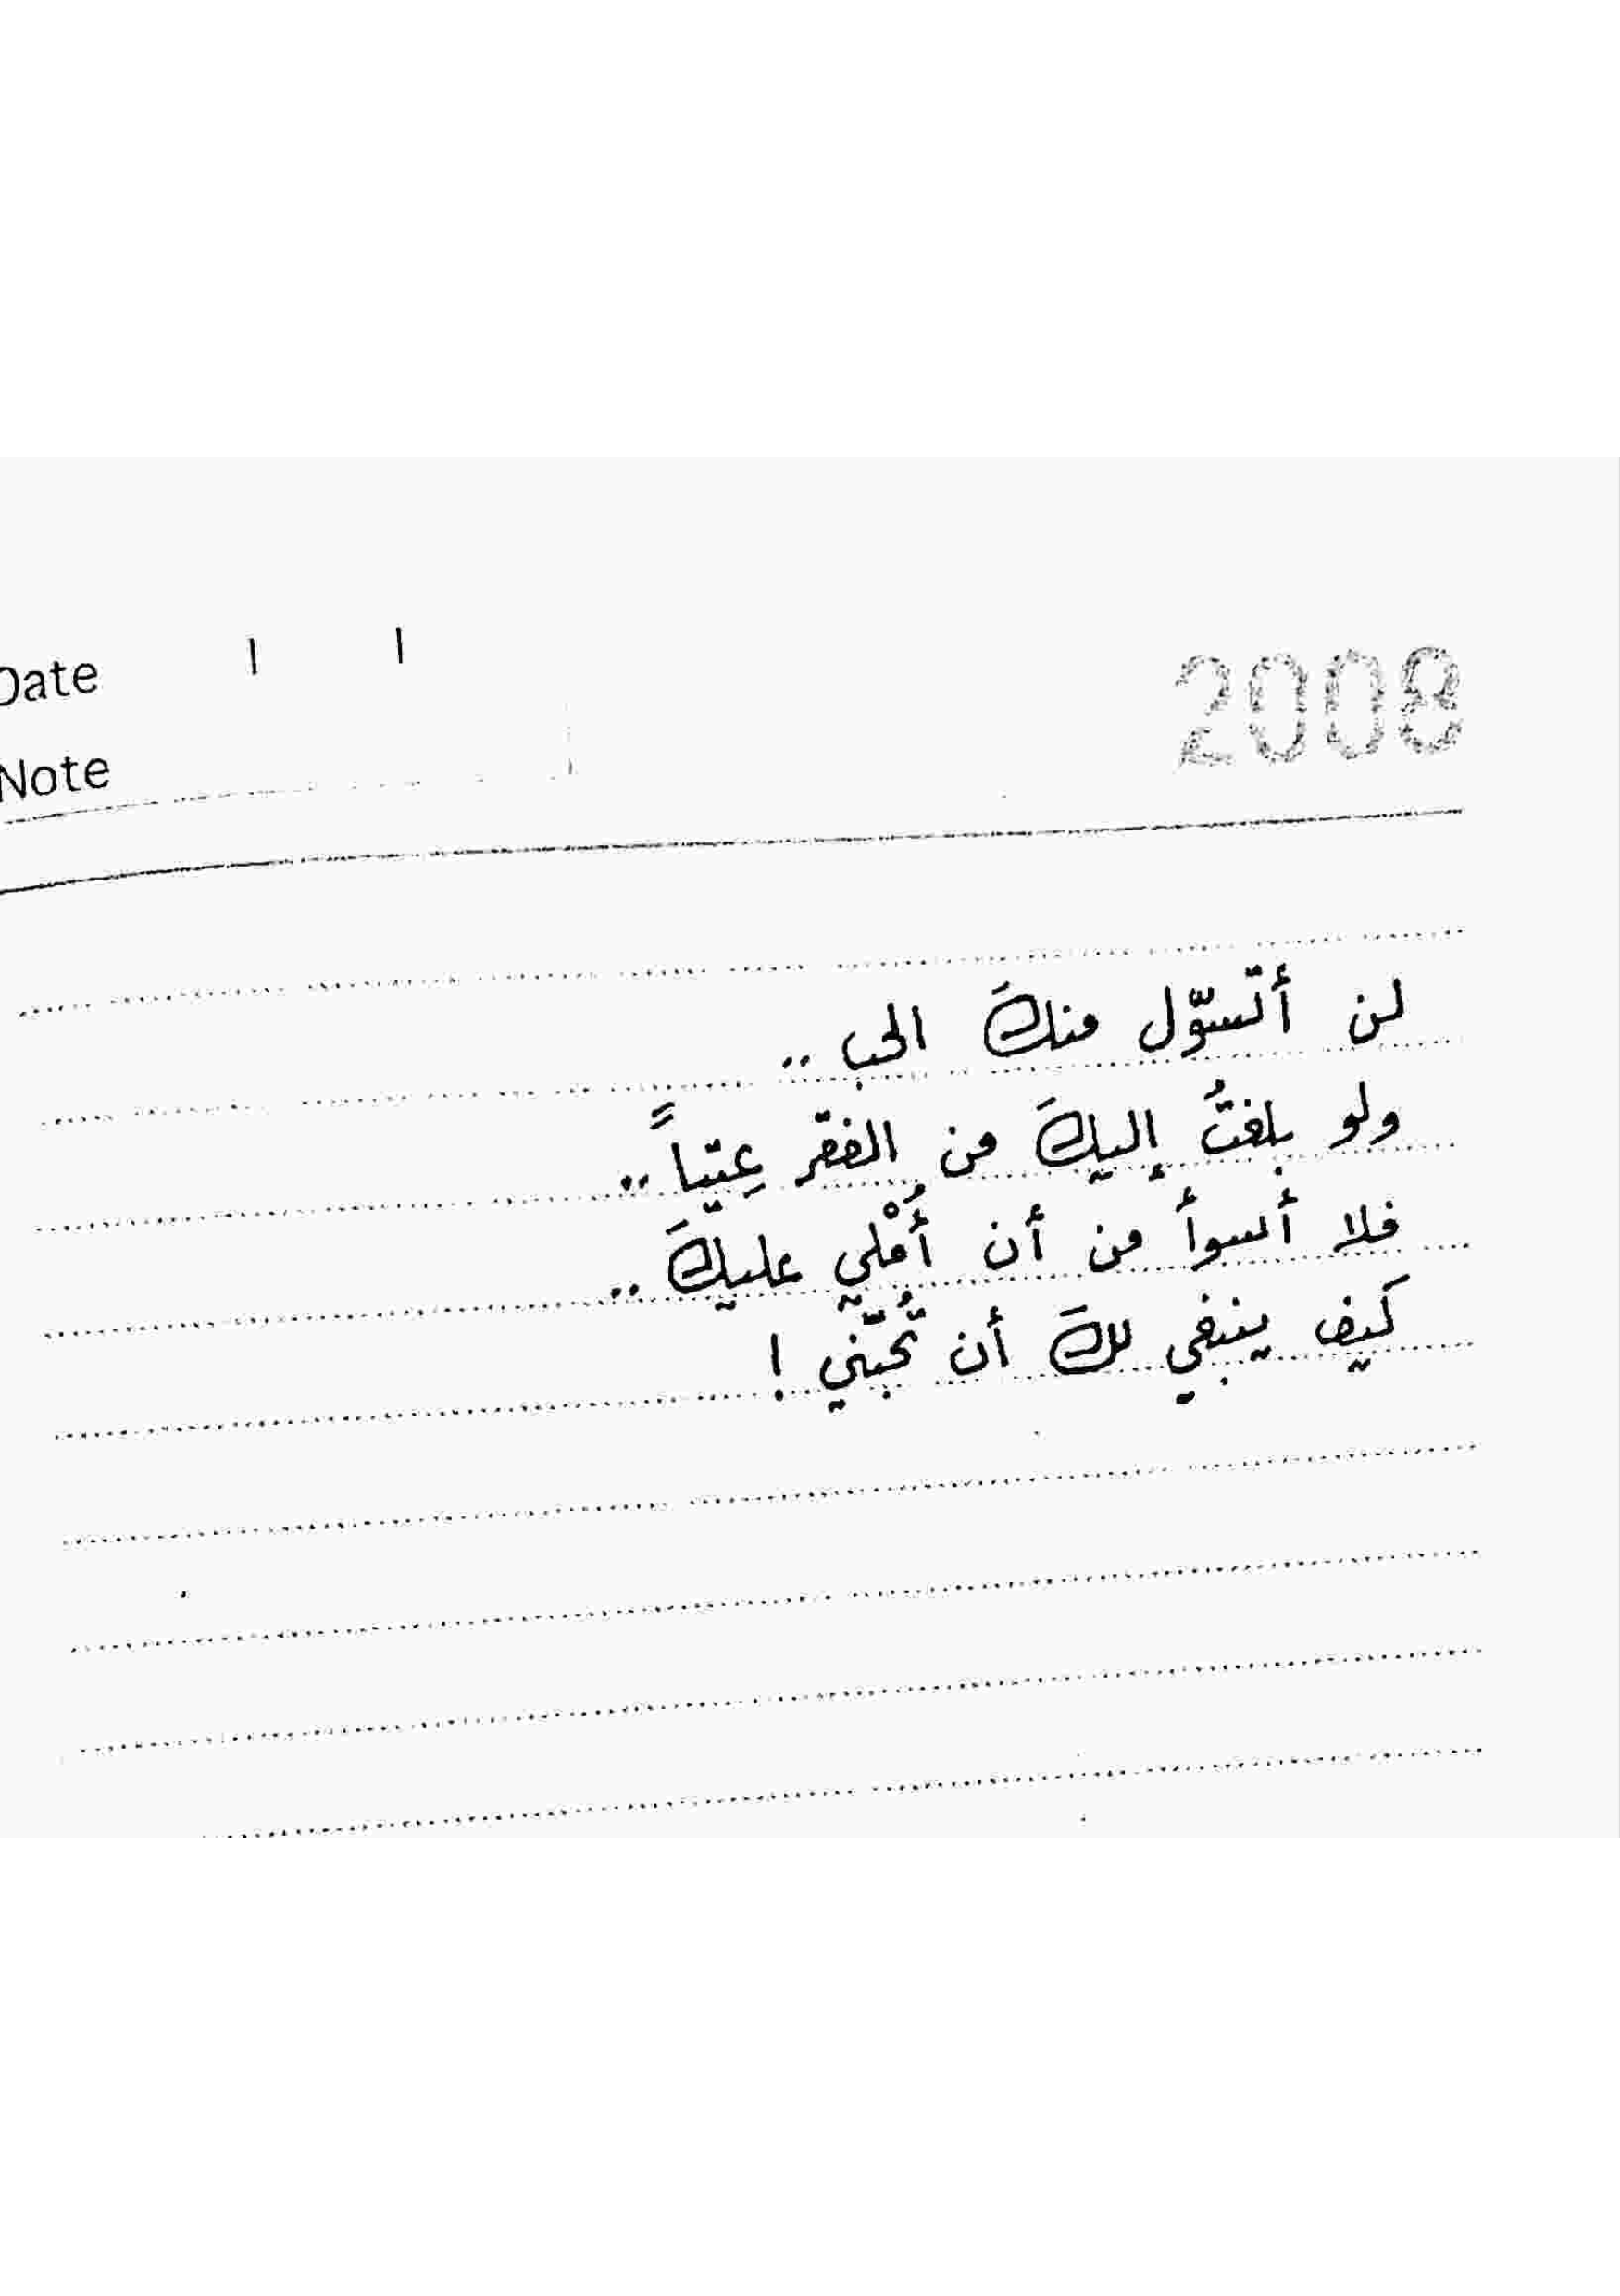 2008
Date / /
Note
لن أتسوّل منكَ الحب ..
ولو بلغتُ إليكَ من الفقر عِتيّاً ..
فلا أسوأ من أن أُمْلي عليكَ ..
كيف ينبغي لكَ أن تُحبّني !